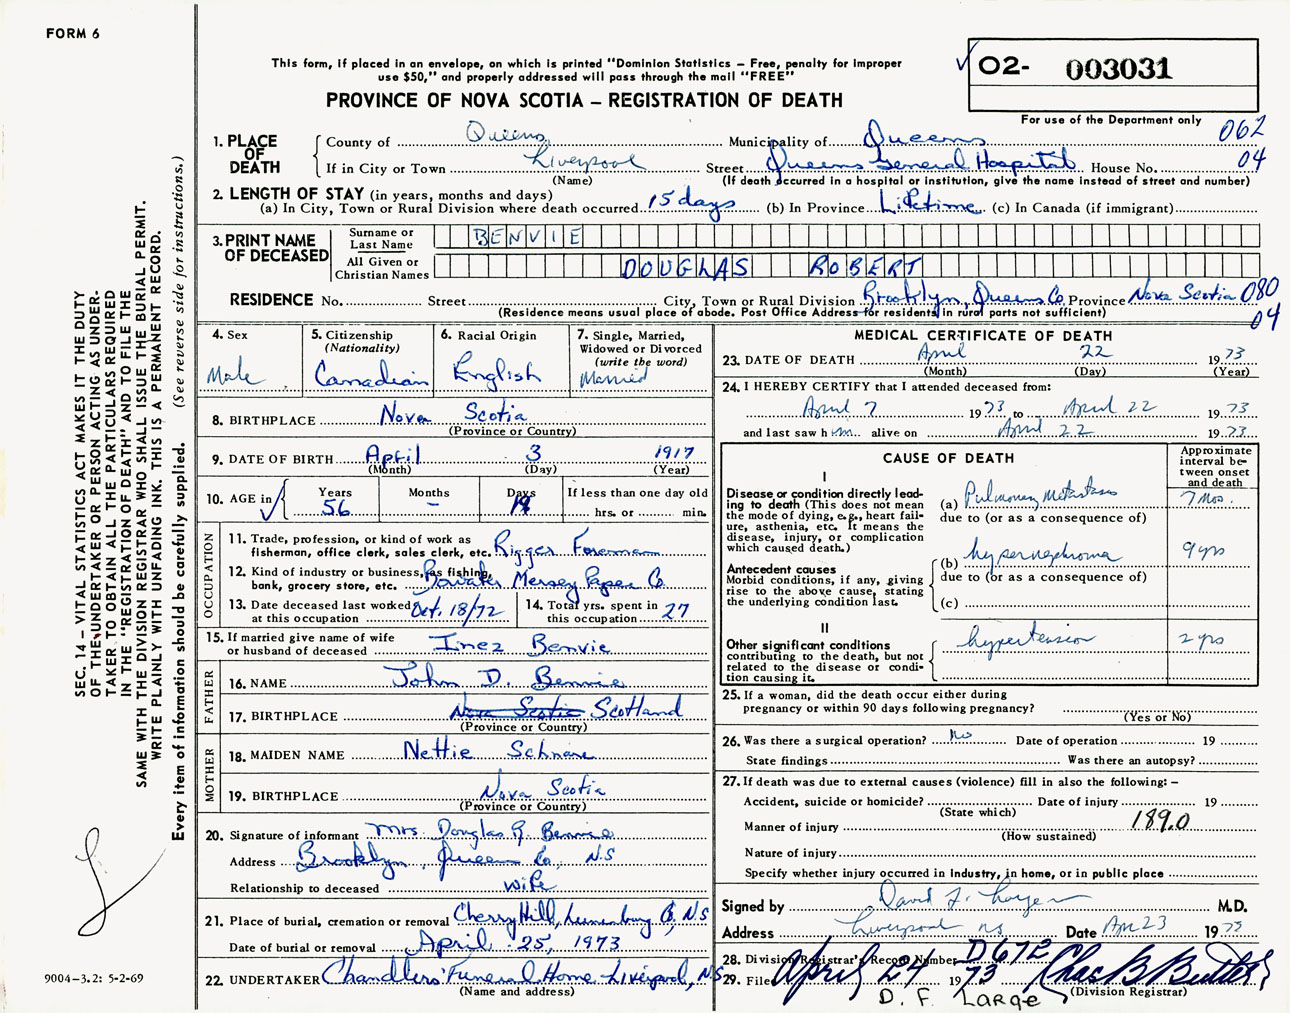 FORM 6
This form, if placed in an envelope, on which is printed "Dominion Statistics – Free, penalty for improper
use $50," and properly addressed will pass through the mail "FREE"
PROVINCE OF NOVA SCOTIA – REGISTRATION OF DEATH
✓ O2- 003031
For use of the Department only
062
04
1. PLACE OF DEATH
County of Queens Municipality of Queens
If in City or Town Liverpool Street Queens General Hospital House No.
(Name) (If death occurred in a hospital or institution, give the name instead of street and number)
2. LENGTH OF STAY (in years, months and days)
(a) In City, Town or Rural Division where death occurred 15 days (b) In Province Lifetime (c) In Canada (if immigrant)
3. PRINT NAME OF DECEASED
Surname or Last Name BENVIE
All Given or Christian Names DOUGLAS ROBERT
RESIDENCE No. Street City, Town or Rural Division Brooklyn, Queens Co. Province Nova Scotia 080
04
(Residence means usual place of abode. Post Office Address for residents in rural parts not sufficient)
4. Sex
Male
5. Citizenship
(Nationality)
Canadian
6. Racial Origin
English
7. Single, Married,
Widowed or Divorced
(write the word)
Married
8. BIRTHPLACE Nova Scotia
(Province or Country)
9. DATE OF BIRTH April 3 1917
(Month) (Day) (Year)
10. AGE in
Years Months Days If less than one day old
56 – 19 hrs. or min.
OCCUPATION
11. Trade, profession, or kind of work as
fisherman, office clerk, sales clerk, etc. Rigger Foremann
12. Kind of industry or business, as fishing,
bank, grocery store, etc. Bowater Mersey Paper Co.
13. Date deceased last worked
at this occupation Oct. 18/72
14. Total yrs. spent in
this occupation 27
15. If married give name of wife
or husband of deceased Inez Benvie
FATHER
16. NAME John D. Benvie
17. BIRTHPLACE Nova Scotia Scotland
(Province or Country)
MOTHER
18. MAIDEN NAME Nettie Schnare
19. BIRTHPLACE Nova Scotia
(Province or Country)
20. Signature of informant Mrs. Douglas R. Benvie
Address Brooklyn, Queens Co. N.S
Relationship to deceased wife
21. Place of burial, cremation or removal Cherry Hill, Lunenburg Co, N.S
Date of burial or removal April 25, 1973
22. UNDERTAKER Chandlers' Funeral Home – Liverpool, N.S
(Name and address)
MEDICAL CERTIFICATE OF DEATH
23. DATE OF DEATH April 22 1973
(Month) (Day) (Year)
24. I HEREBY CERTIFY that I attended deceased from:
April 7 1973 to April 22 1973
and last saw him alive on April 22 1973
CAUSE OF DEATH
Approximate
interval be-
tween onset
and death
I
Disease or condition directly lead-
ing to death (This does not mean
the mode of dying, e.g., heart fail-
ure, asthenia, etc. It means the
disease, injury, or complication
which caused death.)
(a) Pulmonary Metastases 7 Mos.
due to (or as a consequence of)
(b) hypernephroma 9 yrs
due to (or as a consequence of)
Antecedent causes
Morbid conditions, if any, giving
rise to the above cause, stating
the underlying condition last.
(c)
II
Other significant conditions
contributing to the death, but not
related to the disease or condi-
tion causing it.
hypertension 2 yrs
25. If a woman, did the death occur either during
pregnancy or within 90 days following pregnancy?
(Yes or No)
26. Was there a surgical operation? No Date of operation 19
State findings Was there an autopsy?
27. If death was due to external causes (violence) fill in also the following: –
Accident, suicide or homicide? Date of injury 19
(State which)
Manner of injury 189.0
(How sustained)
Nature of injury
Specify whether injury occurred in industry, in home, or in public place
Signed by David F. Large M.D.
Address Liverpool NS Date Apr 23 1973
28. Division Registrar's Record Number D672
29. Filed April 24 1973 Chas B Butler
(Division Registrar)
D. F. Large
SEC. 14 – VITAL STATISTICS ACT MAKES IT THE DUTY
OF THE UNDERTAKER OR PERSON ACTING AS UNDER-
TAKER TO OBTAIN ALL THE PARTICULARS REQUIRED
IN THE "REGISTRATION OF DEATH" AND TO FILE THE
SAME WITH THE DIVISION REGISTRAR WHO SHALL ISSUE THE BURIAL PERMIT.
WRITE PLAINLY WITH UNFADING INK. THIS IS A PERMANENT RECORD.
Every item of information should be carefully supplied. (See reverse side for instructions.)
9004–3.2: 5-2-69